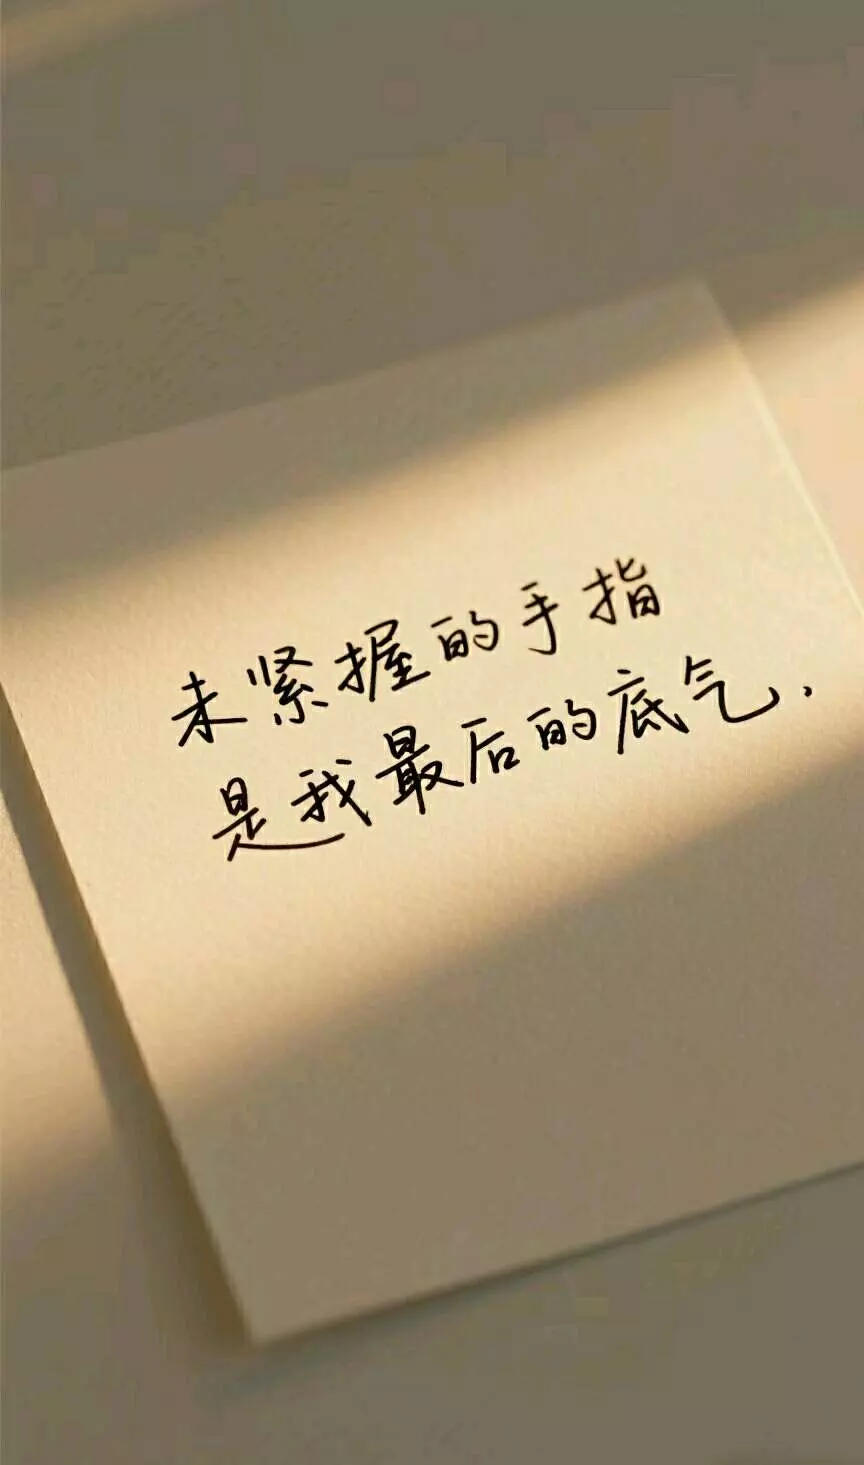 未紧握的手指
是我最后的底气.